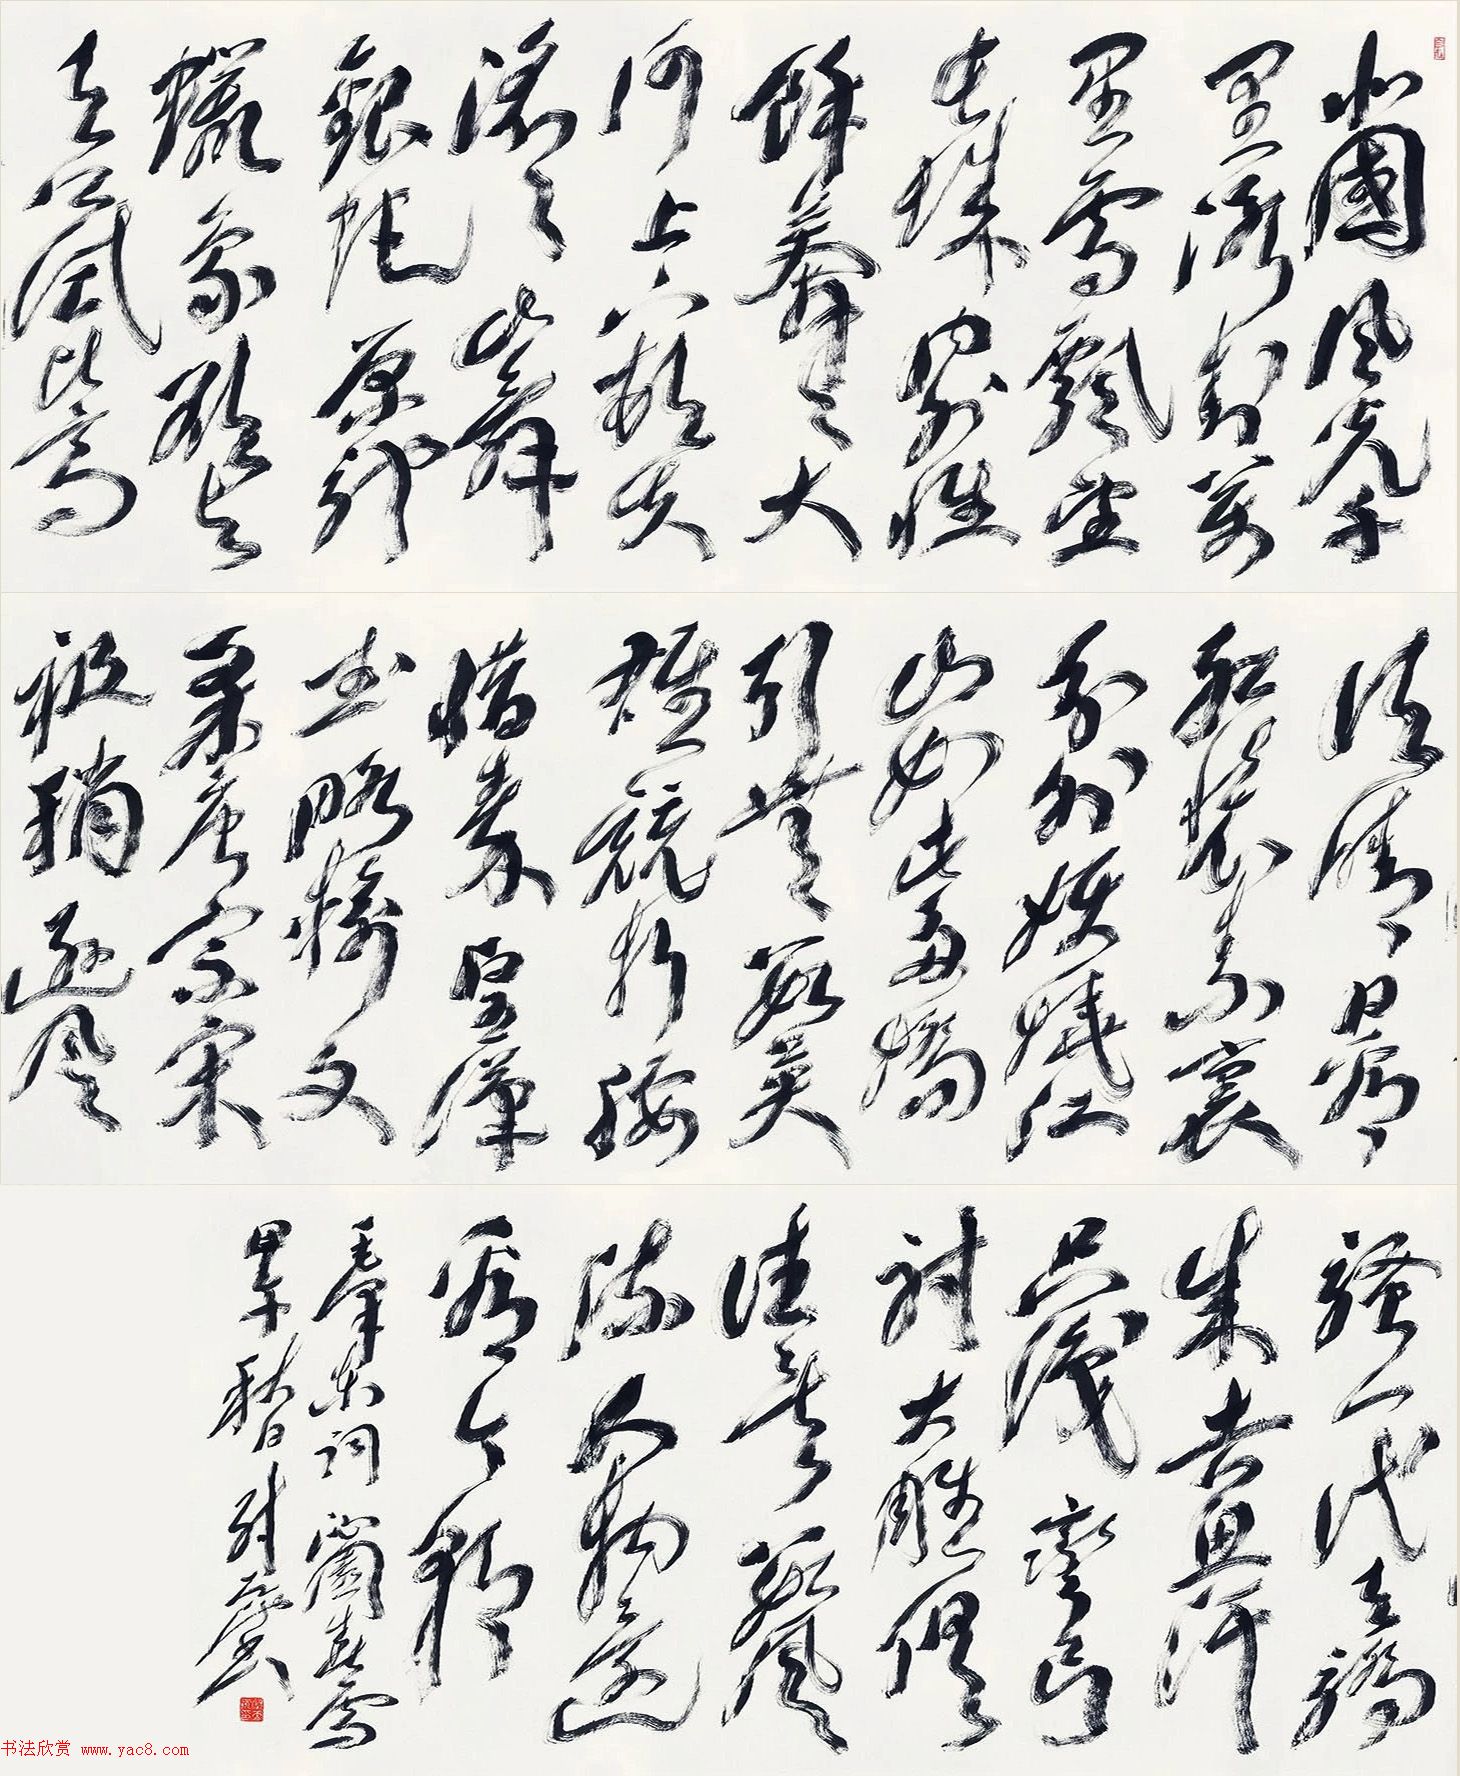 北國風光千
里冰封萬
里雪飄望
長城內外惟
餘莽莽大
河上下頓失
滔滔山舞
銀蛇原馳
蠟象欲與
天公試比高
須晴日看
紅裝素裹
分外妖嬈江
山如此多嬌
引無數英
雄競折腰
惜秦皇漢
武略輸文
采唐宗宋
祖稍遜風
騷一代天驕
成吉思汗
只識彎弓
射大雕俱
往矣數風
流人物還
看今朝
毛澤東詞沁園春雪
甲午秋日
书法欣赏 www.yac8.com